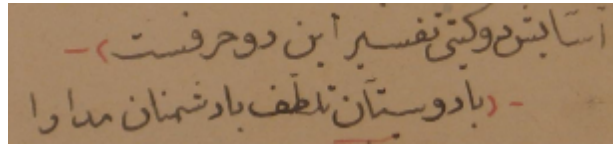 آسایش دوگیتی تفسیر این دو حرفست
بادوستان تلطف بادشمنان مدارا